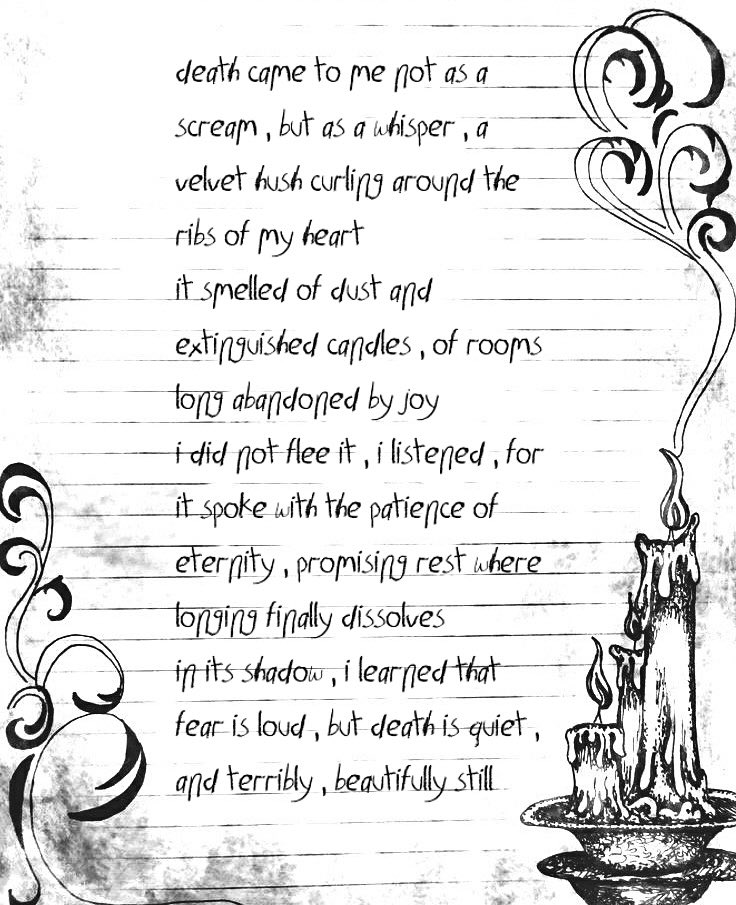 death came to me not as a
scream , but as a whisper , a
velvet hush curling around the
ribs of my heart
it smelled of dust and
extinguished candles , of rooms
long abandoned by joy
i did not flee it , i listened , for
it spoke with the patience of
eternity , promising rest where
longing finally dissolves
in its shadow , i learned that
fear is loud , but death is quiet ,
and terribly , beautifully still